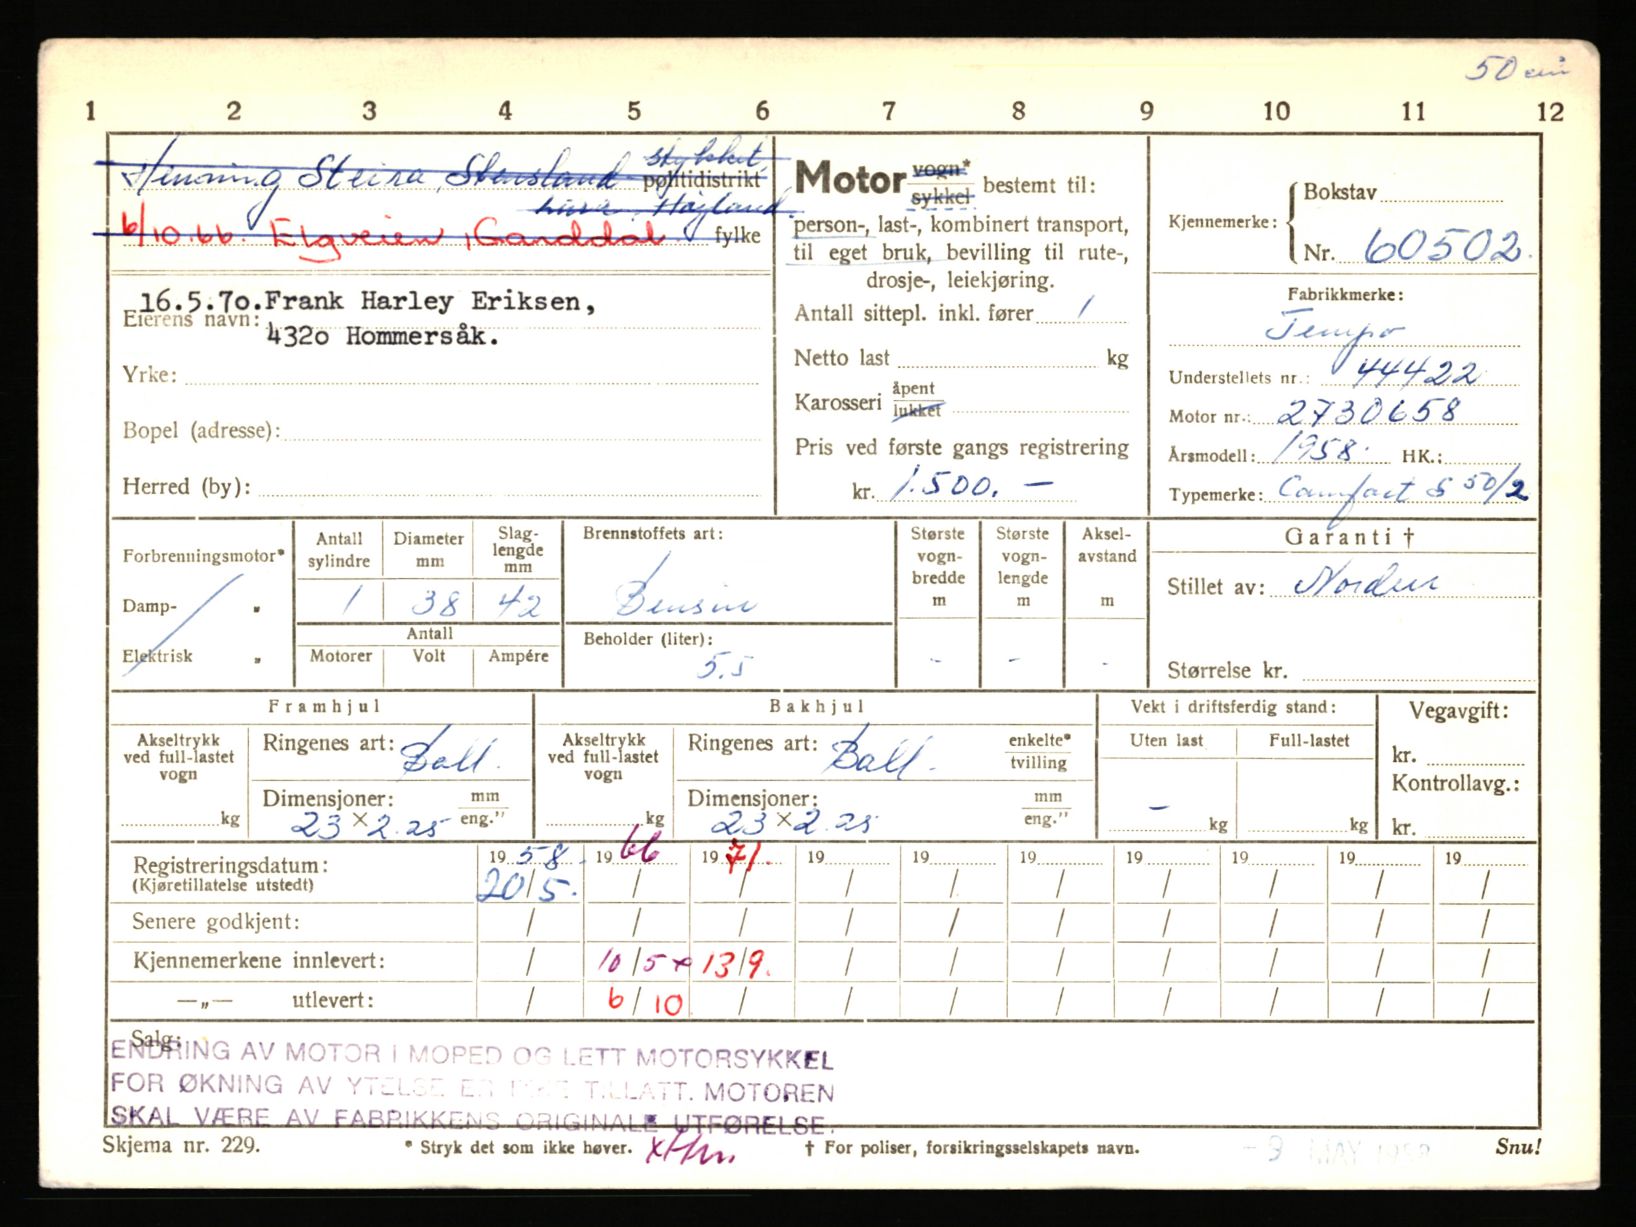 50 cm³
1 2 3 4 5 6 7 8 9 10 11 12
Henning Steira, Stensland
politidistrikt
6/10.66. Elgveien, Ganddal fylke
16.5.7o.Frank Harley Eriksen,
Eierens navn:
432o Hommersåk.
Yrke:
Bopel (adresse):
Herred (by):
Motor vogn* sykkel bestemt til:
person-, last-, kombinert transport,
til eget bruk, bevilling til rute-,
drosje-, leiekjøring.
Antall sittepl. inkl. fører 1
Netto last kg
Karosseri åpent lukket
Pris ved første gangs registrering
kr. 1.500.-
Kjennemerke: Bokstav
Nr. 60502.
Fabrikkmerke:
Tempo
Understellets nr.: 44422
Motor nr.: 2730658
Årsmodell: 1958. HK.:
Typemerke: Comfort S 50/2
Forbrenningsmotor*
Damp- „
Elektrisk „
Antall sylindre
Diameter mm
Slag-lengde mm
1 38 42
Antall
Motorer Volt Ampére
Brennstoffets art:
Bensin
Beholder (liter):
5.5
Største vogn-bredde m
Største vogn-lengde m
Aksel-avstand m
- - -
Garanti †
Stillet av: Norden
Størrelse kr.
Framhjul
Akseltrykk ved full-lastet vogn
kg
Ringenes art: Ball.
Dimensjoner: mm eng."
23 x 2.25
Bakhjul
Akseltrykk ved full-lastet vogn
kg
Ringenes art: Ball. enkelte* tvilling
Dimensjoner: mm eng."
23 x 2.25
Vekt i driftsferdig stand:
Uten last Full-lastet
- kg kg
Vegavgift:
kr.
Kontrollavg.:
kr.
Registreringsdatum: 1958. 1966 1971. 19 19 19 19 19 19 19
(Kjøretillatelse utstedt) 20/5. / / / / / / / / /
Senere godkjent: / / / / / / / / / /
Kjennemerkene innlevert: / 10/5 x 13/9. / / / / / / /
—„— utlevert: / 6/10 / / / / / / / /
Salg:
ENDRING AV MOTOR I MOPED OG LETT MOTORSYKKEL
FOR ØKNING AV YTELSE ER IKKE TILLATT. MOTOREN
SKAL VÆRE AV FABRIKKENS ORIGINALE UTFØRELSE.
Skjema nr. 229. * Stryk det som ikke høver. † For poliser, forsikringsselskapets navn. -9 MAY 1958 Snu!